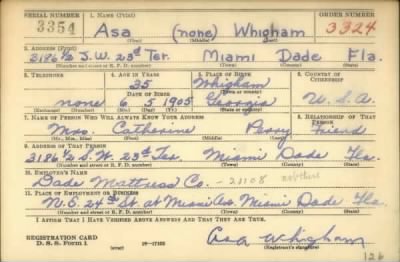 SERIAL NUMBER 1. NAME (Print) ORDER NUMBER
3354 Asa (none) Whigham 3324
(First) (Middle) (Last)
2. ADDRESS (Print)
3186½ S.W. 23d Ter. Miami Dade Fla.
(Number and street or R. F. D. number) (Town) (County) (State)
3. TELEPHONE 4. AGE IN YEARS 5. PLACE OF BIRTH 6. COUNTRY OF CITIZENSHIP
35 Whigham
DATE OF BIRTH (Town or county)
none 6 5 1905 Georgia U.S.A.
(Exchange) (Number) (Mo.) (Day) (Yr.) (State or country)
7. NAME OF PERSON WHO WILL ALWAYS KNOW YOUR ADDRESS 8. RELATIONSHIP OF THAT PERSON
Mrs. Catherine Perry Friend
(Mr., Mrs., Miss) (First) (Middle) (Last)
9. ADDRESS OF THAT PERSON
3186½ S.W. 23d Ter. Miami Dade Fla.
(Number and street or R. F. D. number) (Town) (County) (State)
10. EMPLOYER'S NAME
Dade Mattress Co. -
11. PLACE OF EMPLOYMENT OR BUSINESS
N.E. 24th St. at Miami Ave. Miami Dade Fla.
(Number and street or R. F. D. number) (Town) (County) (State)
I AFFIRM THAT I HAVE VERIFIED ABOVE ANSWERS AND THAT THEY ARE TRUE.
REGISTRATION CARD
D. S. S. Form 1 (over) 16-17105 Asa Whigham
(Registrant's signature)
126